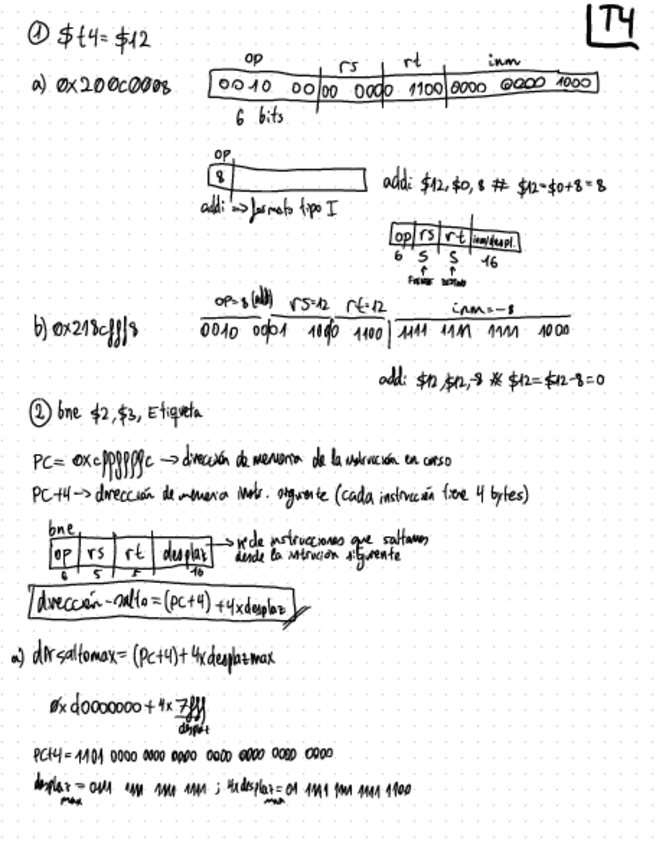 T4
① $t4 = $12
op rs rt inm
a) 0x200c0008 0010 00 00 0000 1100 0000 0000 1000
6 bits
op
8 addi $12, $0, 8 # $12=$0+8=8
addi => formato tipo I
op rs rt inm/despl.
6 5 5 16
FUENTE DESTINO
op=8 (addi) rs=12 rt=12 inm=-8
b) 0x218cfff8 0010 0001 1000 1100 1111 1111 1111 1000
addi $12,$12,-8 # $12=$12-8=0
② bne $2,$3, Etiqueta
PC= 0xcffffffc → dirección de memoria de la instrucción en curso
PC+4 → dirección de memoria instr. siguiente (cada instrucción tiene 4 bytes)
bne
op rs rt desplaz → nº de instrucciones que saltamos
6 5 5 16 desde la instrucción siguiente
dirección-salto = (PC+4) + 4xdesplaz
a) dirsaltomax= (PC+4)+ 4xdesplazmax
0xd0000000 + 4x 7fff
desplaz
PC+4 = 1101 0000 0000 0000 0000 0000 0000 0000
desplaz = 0111 1111 1111 1111 ; 4xdesplaz = 01 1111 1111 1111 1100
max max